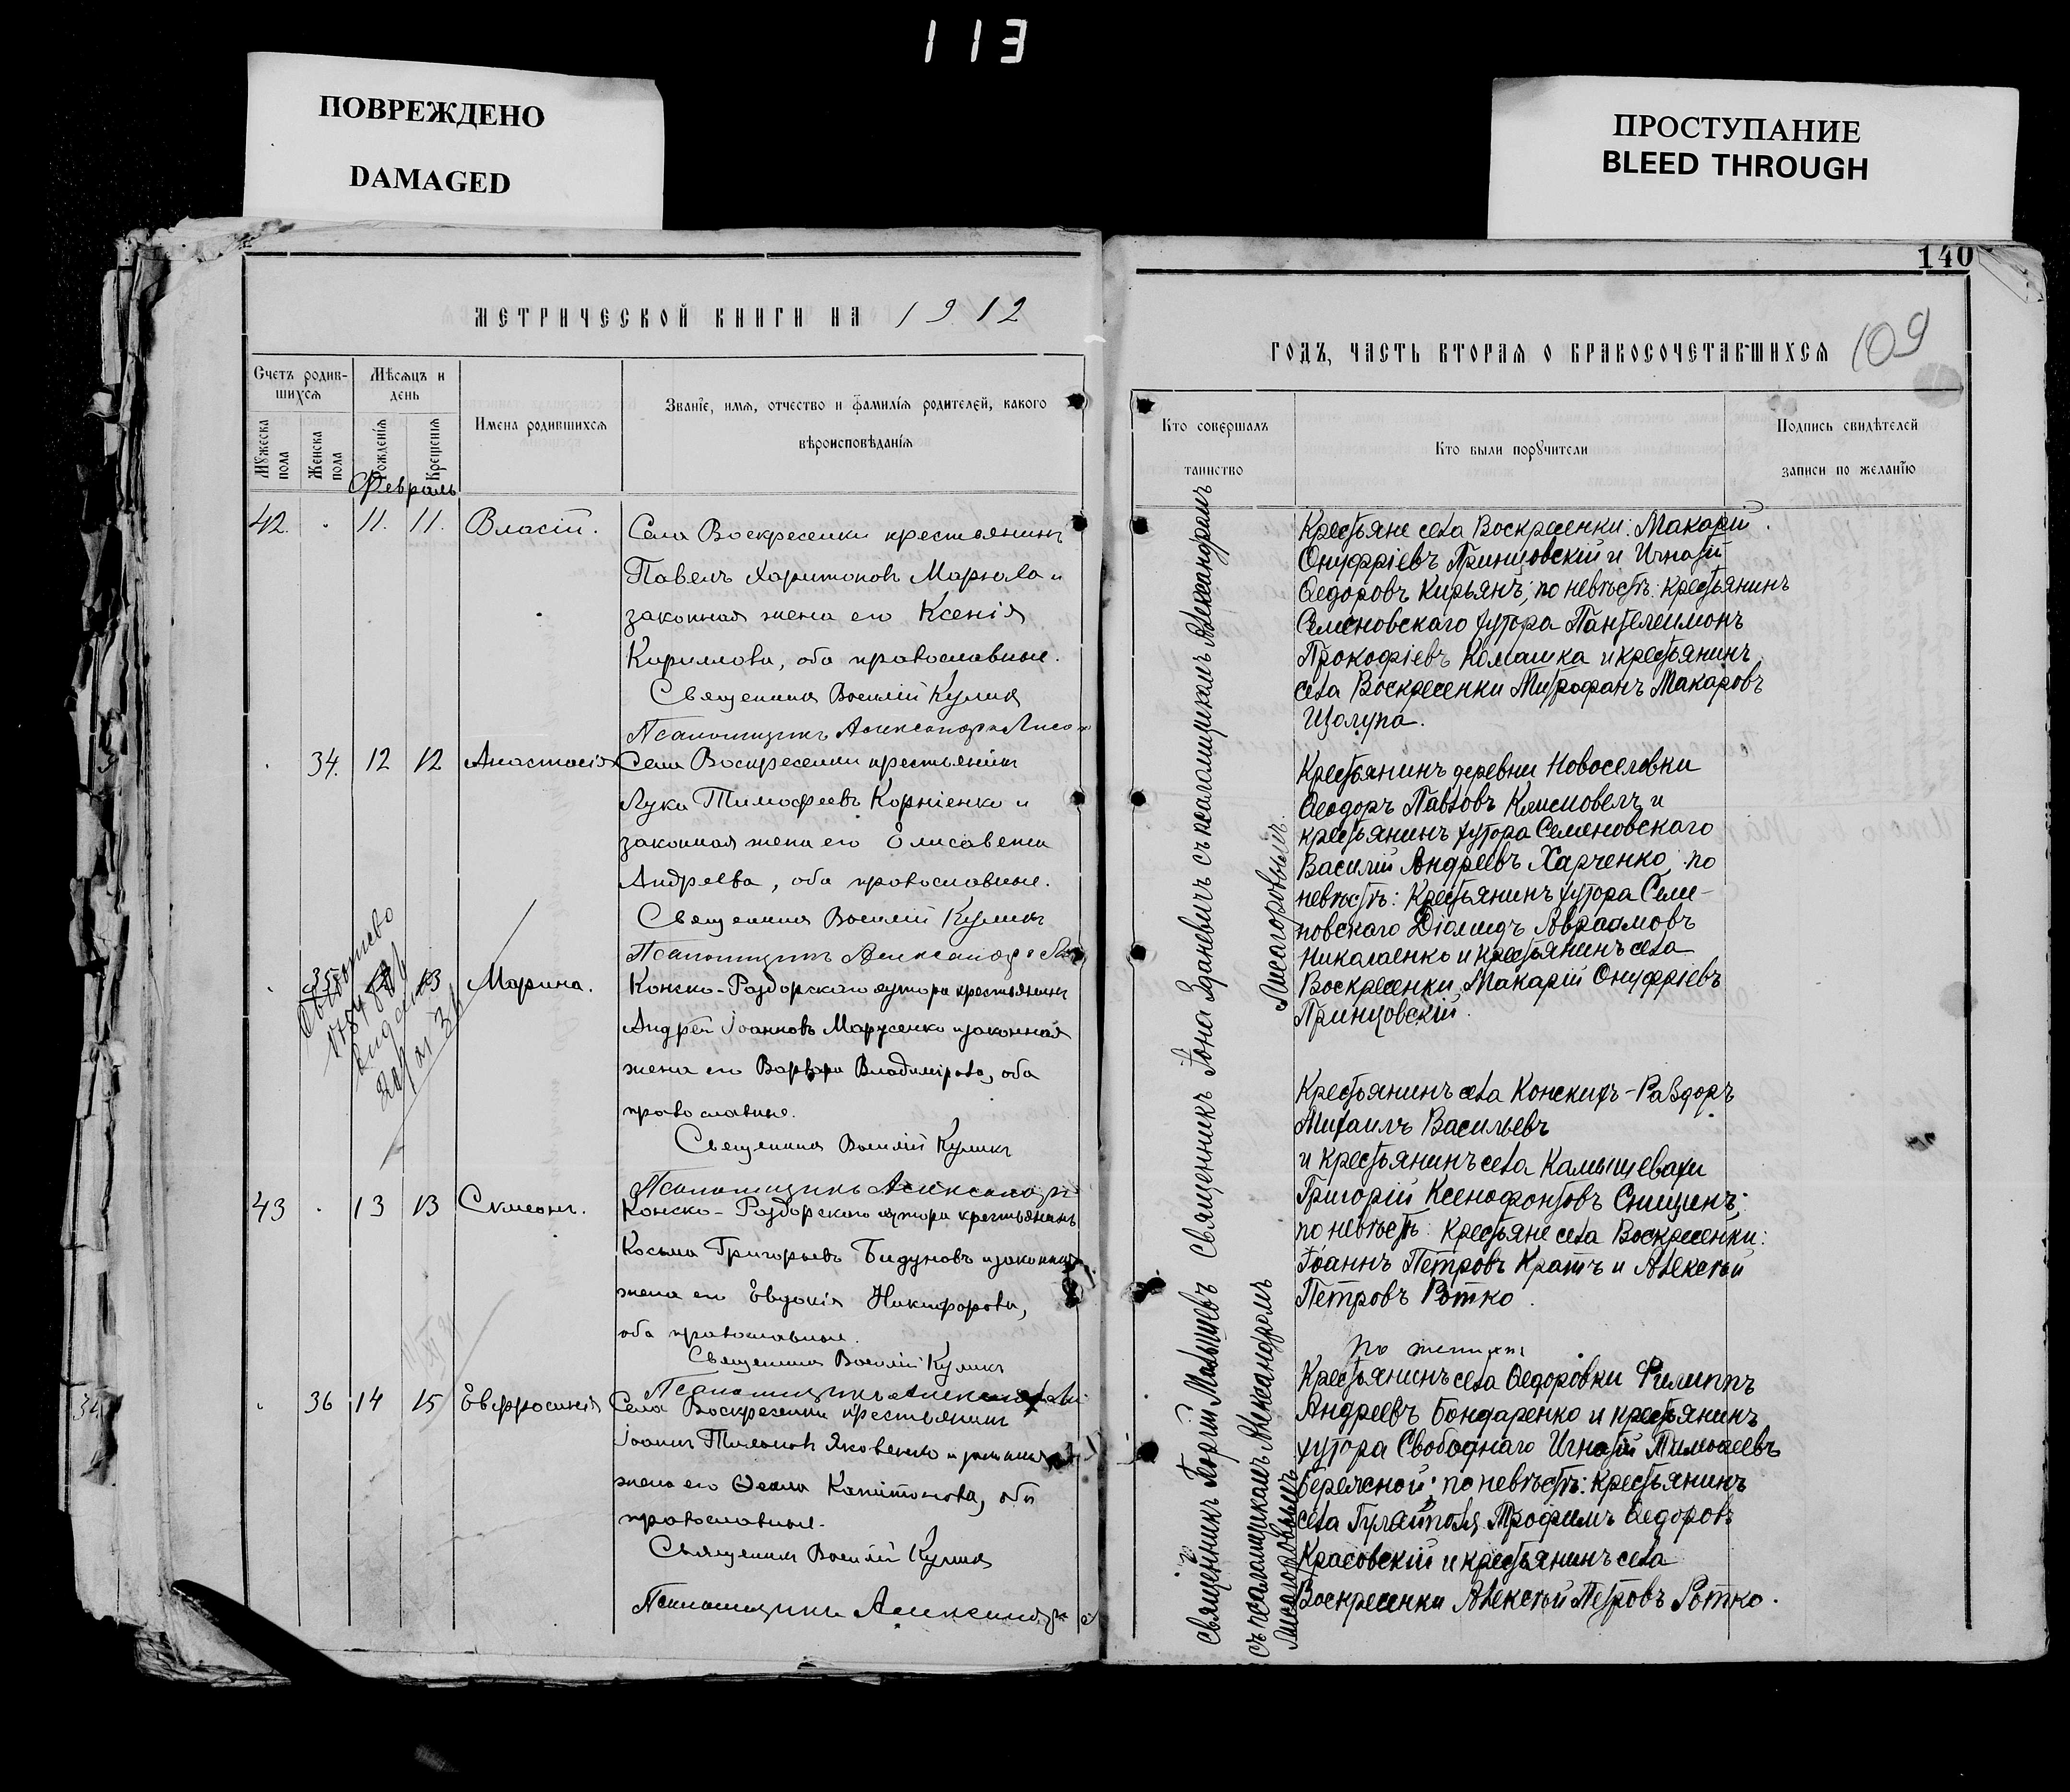 113
ПОВРЕЖДЕНО
DAMAGED
ПРОСТУПАНИЕ
BLEED THROUGH
МЕТРИЧЕСКОЙ КНИГИ НА 1912
Счетъ родив-
шихся
Мѣсяцъ и
день
Имена родившихся
Званїе, имя, отчество и фамилїя родителей, какого
вѣроисповѣданїя
Мужеска пола
Женска пола
Рожденїя
Крещенїя
Февраль
42. 11. 11. Власій.
Села Воскресенки крестьянинъ
Павелъ Харитоновъ и
законная жена его Ксенія
Кириллова, оба православные.
Священникъ Василій Куликъ
Псаломщикъ Александръ
34. 12 12 Анастасія
Села Воскресенки крестьянинъ
Лука Тимофеевъ Корніенко и
законная жена его Елисавета
Андреева, оба православные.
Священникъ Василій Куликъ
Псаломщикъ Александръ
35 13 Марина.
Конско-Раздорскаго хутора крестьянинъ
Андрей Іоанновъ Марусенко и законная
жена его Варвара Владимірова, оба
православные.
Священникъ Василій Куликъ
Псаломщикъ Александръ
43 13 13 Симеонъ.
Конско-Раздорскаго хутора крестьянинъ
Косьма Григорьевъ Бидуновъ и законная
жена его Евдокія Никифорова,
оба православные.
Священникъ Василій Куликъ
Псаломщикъ
36 14 15 Евфросинія
Села Воскресенки крестьянинъ
Іоаннъ Яковенко и законная
жена его Ѳекла Капитонова, оба
православные.
Священникъ Василій Куликъ
Псаломщикъ Александръ
140
109
ГОДЪ, ЧАСТЬ ВТОРАЯ О БРАКОСОЧЕТАВШИХСЯ
Кто совершалъ
таинство
Кто были поручители
Подпись свидѣтелей
записи по желанїю
Священникъ Іона Зданевичъ съ псаломщикомъ Александромъ
Лисагоровымъ.
Крестьяне села Воскресенки: Макарій
Онуфріевъ Принцовскій и Игнатій
Ѳедоровъ Кирьянъ; по невѣстѣ: крестьянинъ
Семеновскаго хутора Пантелеимонъ
Прокофіевъ Комашка и крестьянинъ
села Воскресенки Митрофанъ Макаровъ
Щолупа.
Крестьянинъ деревни Новоселовки
Ѳеодоръ Павловъ и
крестьянинъ хутора Семеновскаго
Василій Андреевъ Харченко; по
невѣстѣ: Крестьянинъ хутора Семе-
новскаго Діомидъ Авраамовъ
Николаенко и крестьянинъ села
Воскресенки Макарій Онуфріевъ
Принцовскій.
Священникъ Георгій Малышевъ
съ псаломщикомъ Александромъ
Лисагоровымъ
Крестьянинъ села Конскихъ-Раздоръ
Михаилъ Васильевъ
и крестьянинъ села Камышевахи
Григорій Ксенофонтовъ Снищенъ;
по невѣстѣ: Крестьяне села Воскресенки:
Іоаннъ Петровъ Кратъ и Алексѣй
Петровъ Ротко.
по жениху
Крестьянинъ села Ѳедоровки Филиппъ
Андреевъ Бондаренко и крестьянинъ
хутора Свободнаго Игнатій Тимоѳеевъ
Бережной; по невѣстѣ: крестьянинъ
села Гуляйполя Трофимъ Ѳедоровъ
Красовскій и крестьянинъ села
Воскресенки Алексѣй Петровъ Ротко.